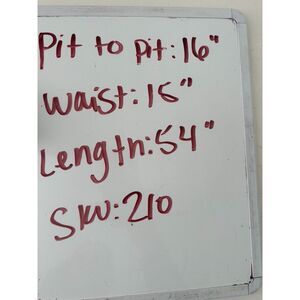 Pit to pit: 16"
Waist: 15"
Length: 54"
SKU: 210